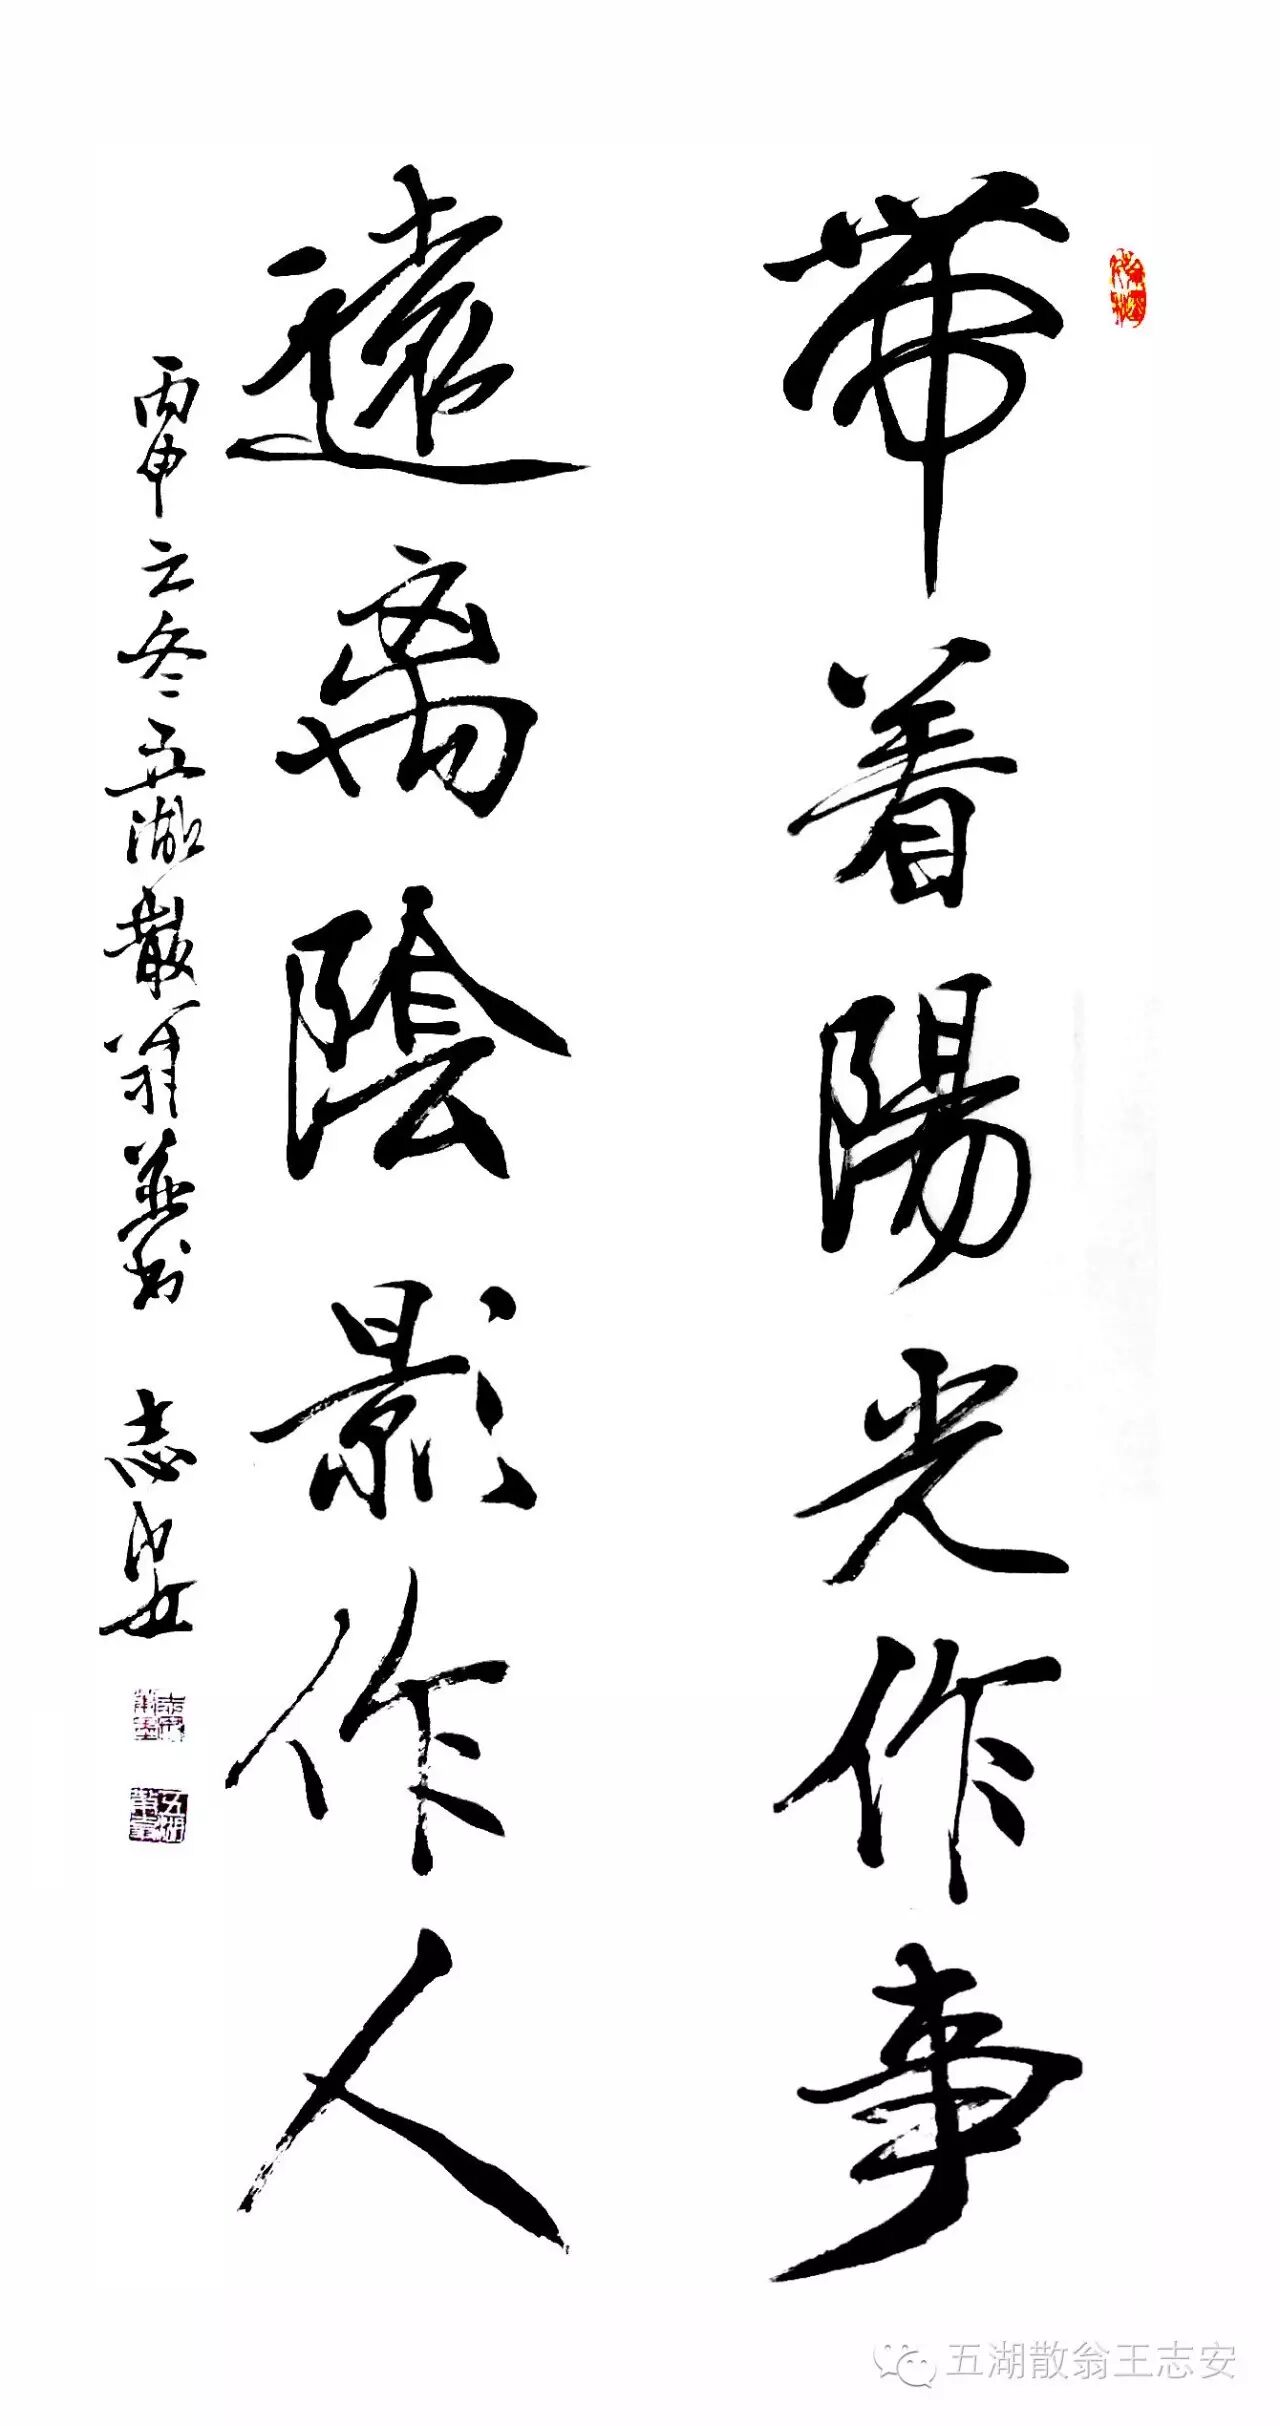 帶着陽光作事
遠離陰影作人
丙申立冬五湖散翁並書 志安
五湖散翁王志安